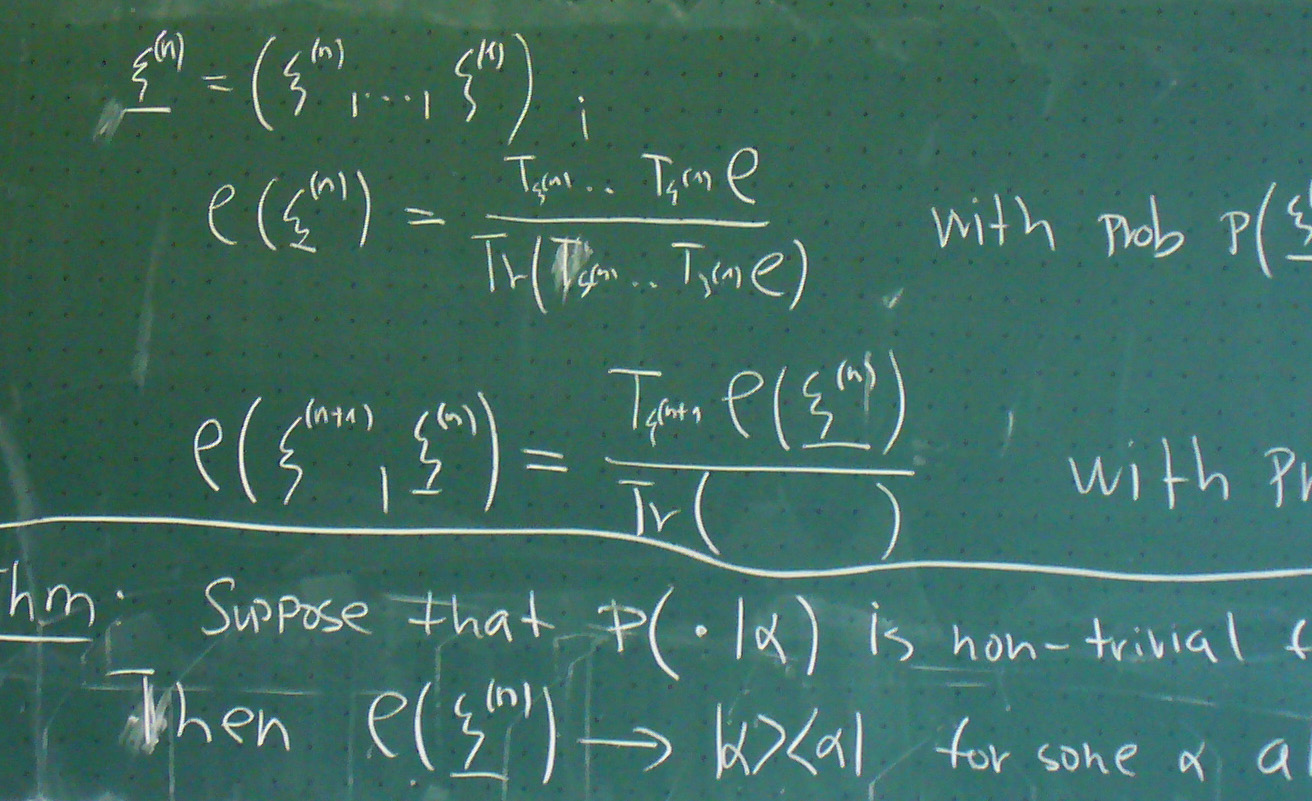 ξ̲⁽ⁿ⁾ = (ξ⁽ⁿ⁾, ..., ξ⁽¹⁾) ;
ρ(ξ̲⁽ⁿ⁾) = T_ξ⁽ⁿ⁾ .. T_ξ⁽¹⁾ ρ / Tr(T_ξ⁽ⁿ⁾ .. T_ξ⁽¹⁾ ρ) with prob P(ξ̲
ρ(ξ⁽ⁿ⁺¹⁾, ξ̲⁽ⁿ⁾) = T_ξ⁽ⁿ⁺¹ ρ(ξ̲⁽ⁿ⁾) / Tr( ) , with Pr
hm: Suppose that P(·|α) is non-trivial f
Then ρ(ξ̲⁽ⁿ⁾) → |α><α| for some α a